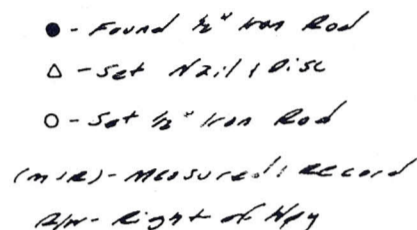 ● - Found 1/2" Iron Rod
△ - Set Nail & Disc
○ - Set 1/2" Iron Rod
(M/R) - Measured / Record
R/W - Right of Way